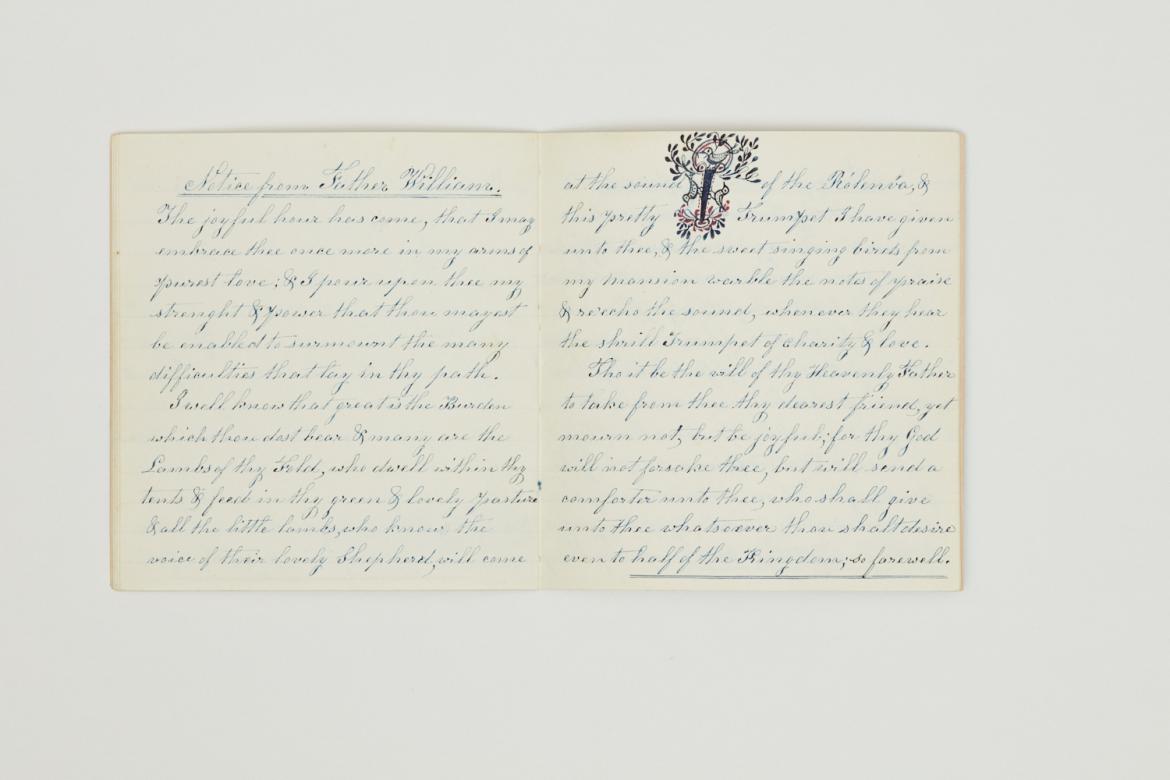 Notice from Father William.
The joyful hour has come, that I may
embrace thee once more in my arms of
purest love; & I pour upon thee my
strenght & power that thou mayest
be enabled to surmount the many
difficulties that lay in thy path.
I well know that great is the Burden
which thou dost bear & many are the
Lambs of thy Fold, who dwell within thy
tents & feed in thy green & lovely pasture
& all the little lambs, who know the
voice of their lovely Shepherd, will come
at the sound of the Róhnva, &
this pretty Trumpet I have given
unto thee, & the sweet singing birds from
my mansion warble the notes of praise
& re'echo the sound, whenever they hear
the shrill Trumpet of charity & love.
Tho it be the will of thy Heavenly Father
to take from thee thy dearest friend, yet
mourn not, but be joyful; for thy God
will not forsake thee, but will send a
comforter unto thee, who shall give
unto thee whatsoever thou shalt desire
even to half of the Kingdom; so farewell.